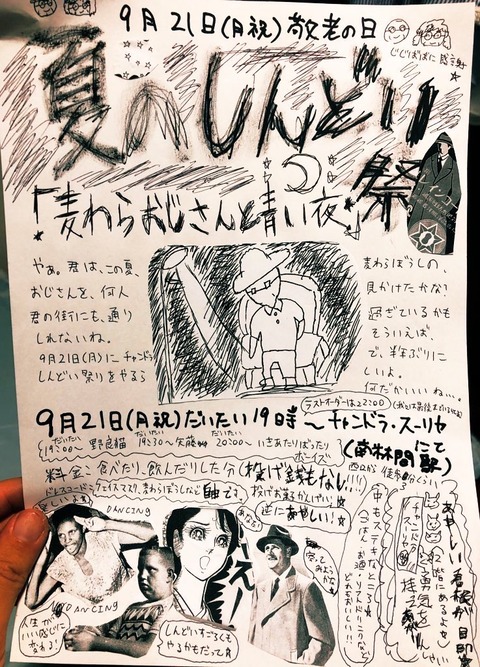 9月21日(月祝)敬老の日
じじばばに感謝
夏のしんどい
祭
「麦わらおじさんと青い夜」
やぁ。君は、この夏、
麦わらぼうしの、
おじさんを、何人
見かけたかな?
君の街にも、通り
過ぎているかも
しれないね。
そういえば、
9月21日(月)にチャンドラで、半年ぶりに
しんどい祭りをやるらしいよ。
何だかいいねぃ。
ラストオーダーは22:00
9月21日(月祝)だいたい19時〜チャンドラ・スーリヤ
にて
(南林間駅)
西口から徒歩
だいたい 19:00〜 野良猫 だいたい 19:30〜矢藤 だいたい 20:00〜 いきあたりばったりボーイズ
料金:食べたり、飲んだりした分(投げ銭もなし!!)
ドレスコード フェイスマスク、麦わらぼうしなど自由です。
逆にあやしい!
楽しいよぉ
DANCING
DANCING
人生が
いい感じに
なれる!
あなた!
えー
しんどいすごろくも
やるかもだって
中もステキなところ
お酒・ソフトドリンクなど
どれもおいしい!!
あやしい看板が目印
2階にあるよ
チャンドラ
スーリヤ
勇気を